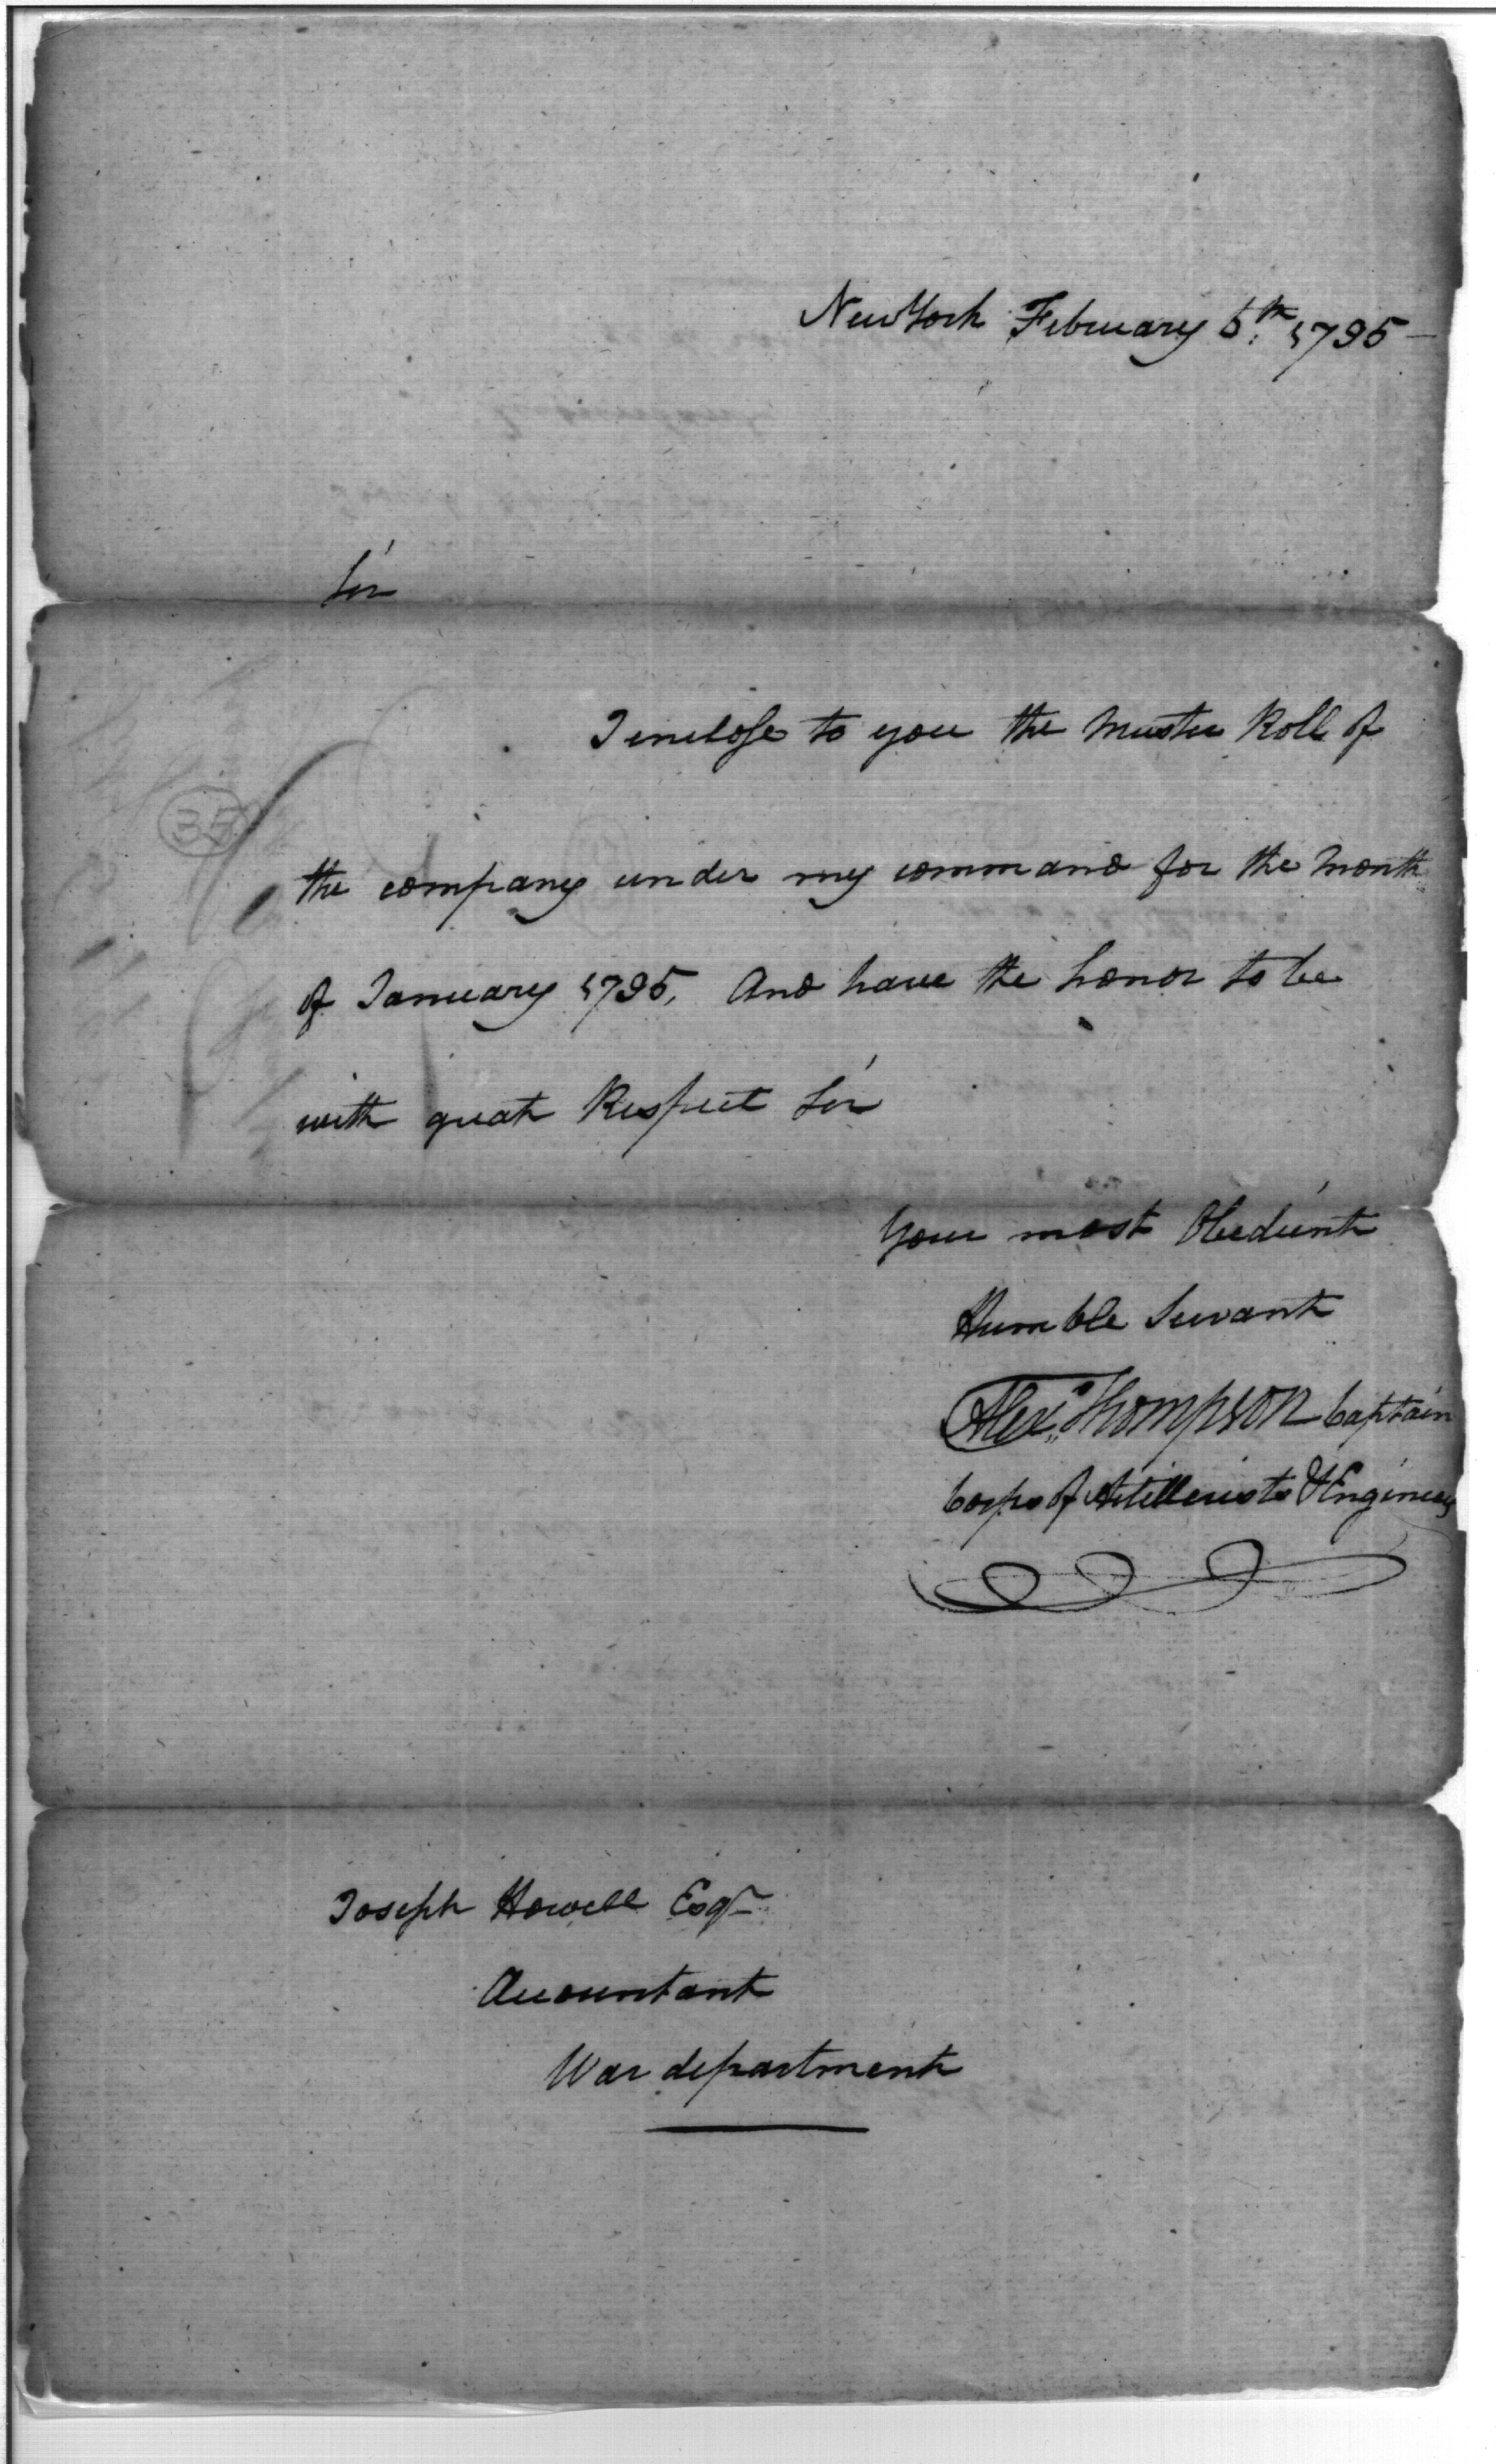 New York February 5th. 1795 —
Sir
I enclose to you the Muster Roll of
35
the company under my command for the Month
of January 1795, And have the honor to be
with great Respect Sir
Your most Obedient
Humble Servant
Alexr. Thompson Captain
Corps of Artillerists & Engineers
Joseph Howell Esqr
Accountant
War department